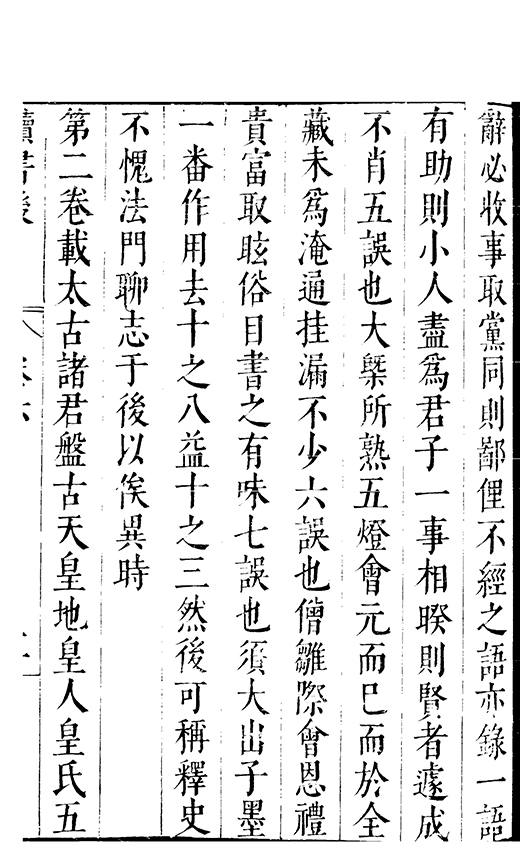 辭必收事取黨同則鄙俚不經之語亦錄一語
有助則小人盡爲君子一事相睽則賢者遽成
不肖五誤也大槩所熟五燈會元而巳而於全
藏未爲淹通挂漏不少六誤也僧雛際會恩禮
貴富取眩俗目書之有味七誤也須大出子墨
一番作用去十之八益十之三然後可稱釋史
不愧法門聊志于後以俟異時
第二卷載太古諸君盤古天皇地皇人皇氏五
讀書後